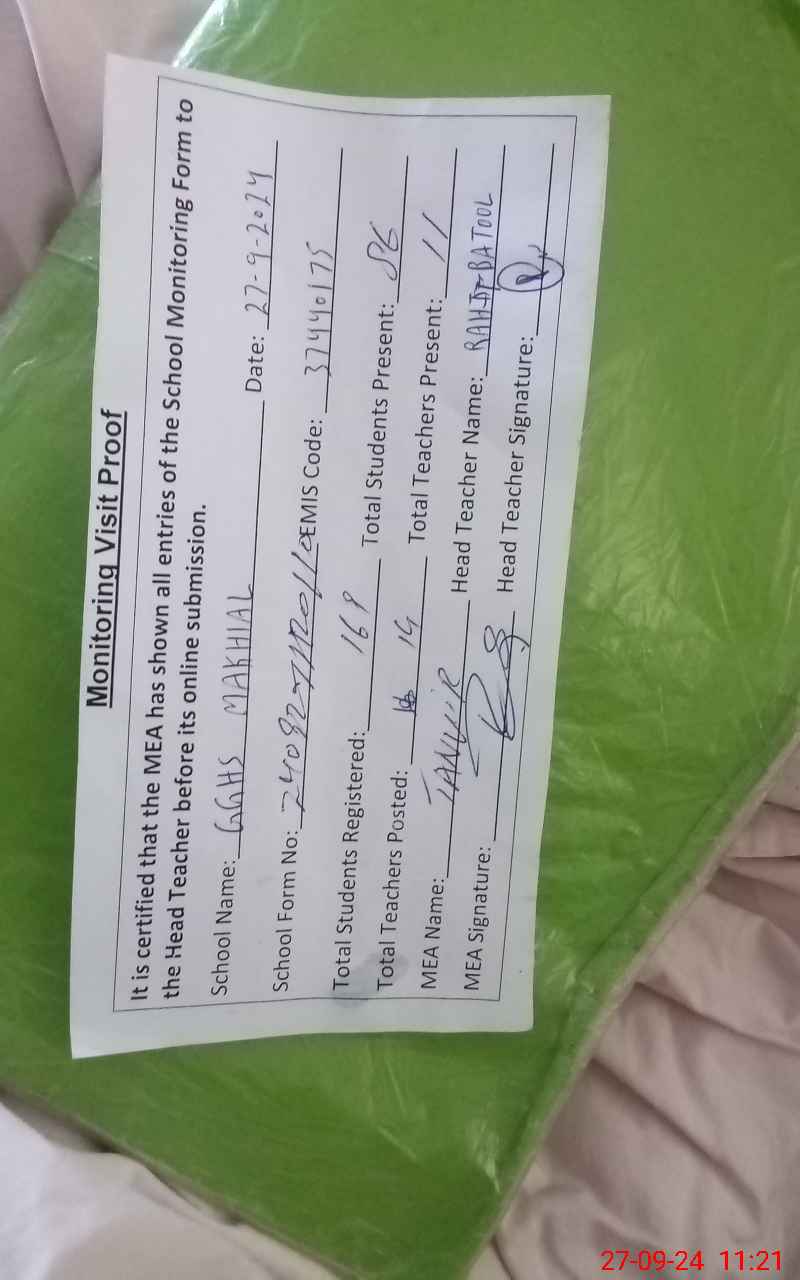 Monitoring Visit Proof
It is certified that the MEA has shown all entries of the School Monitoring Form to
the Head Teacher before its online submission.
School Name: GGHS MAKHIAL Date: 27-9-2024
School Form No: EMIS Code: 37440175
Total Students Registered: 168 Total Students Present: 86
Total Teachers Posted: 14 Total Teachers Present: 11
MEA Name: TANVIR Head Teacher Name: BATOOL
MEA Signature: Head Teacher Signature:
27-09-24 11:21